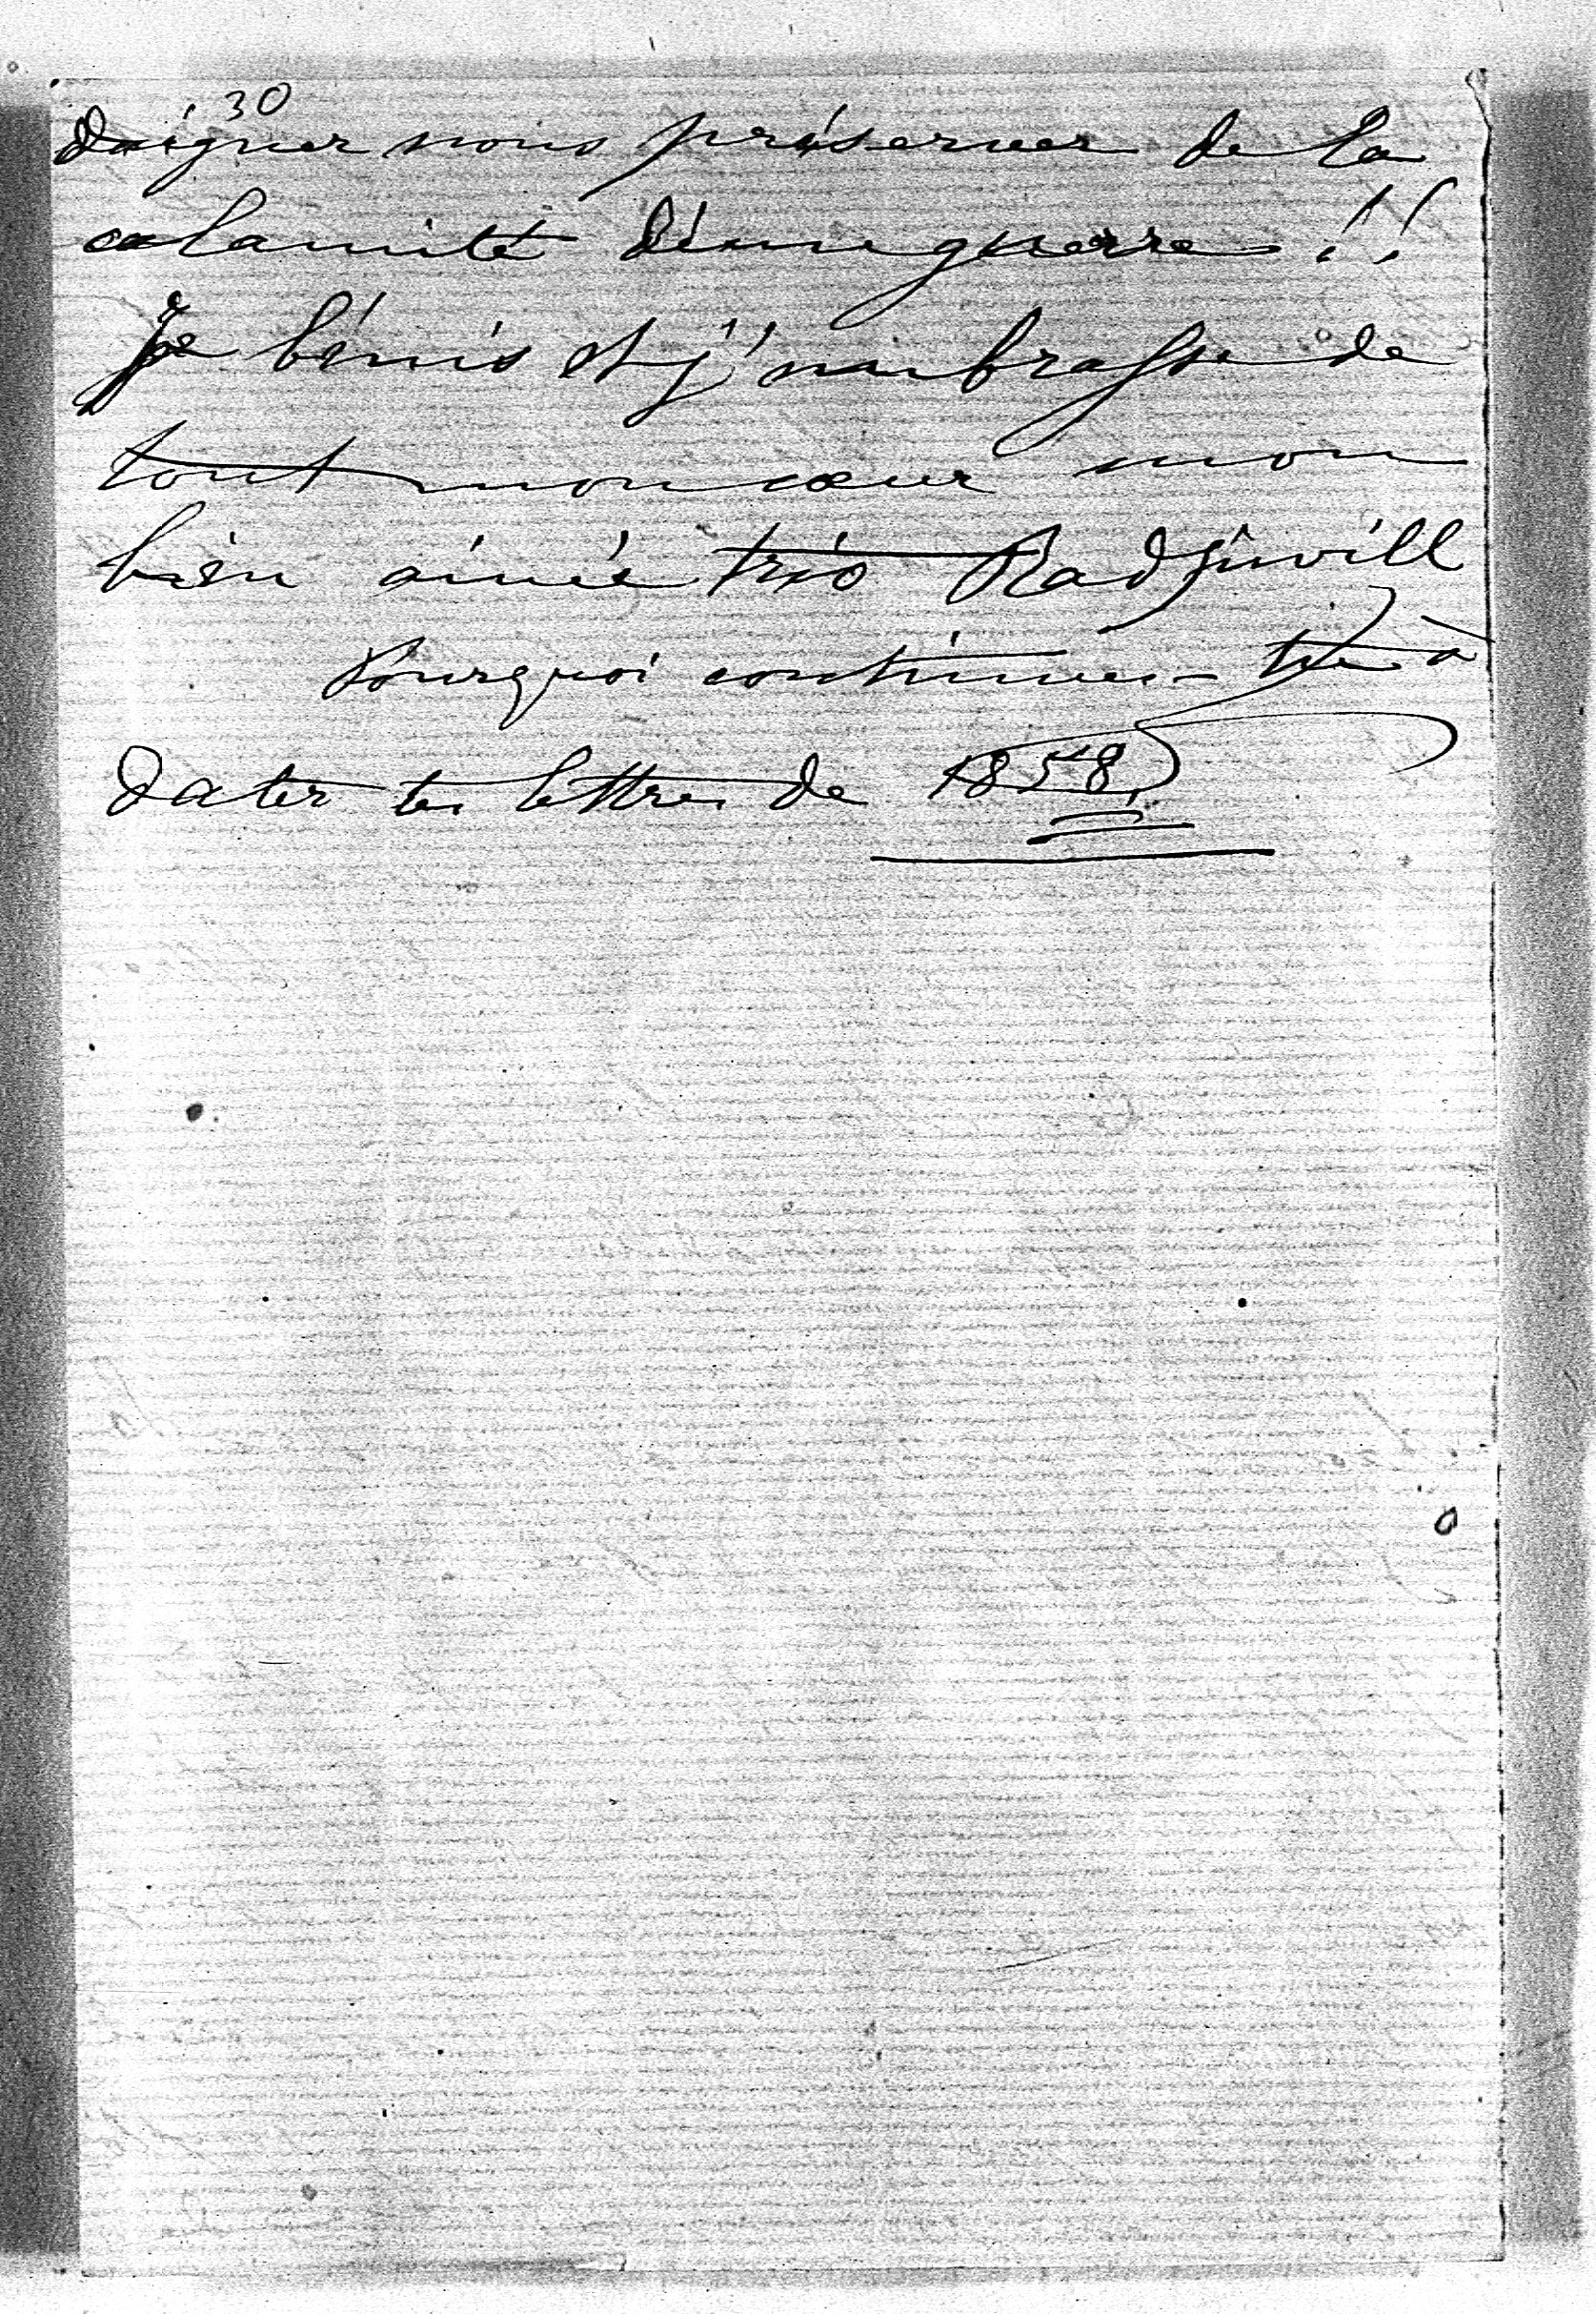 30
daigner nous préserver de la
calamité d'une guerre !!
Je bénis et j'embrasse de
tout mon cœur mon
bien aimée trio Radziwill
Pourquoi continues-tu à
dater tes lettres de 1858?